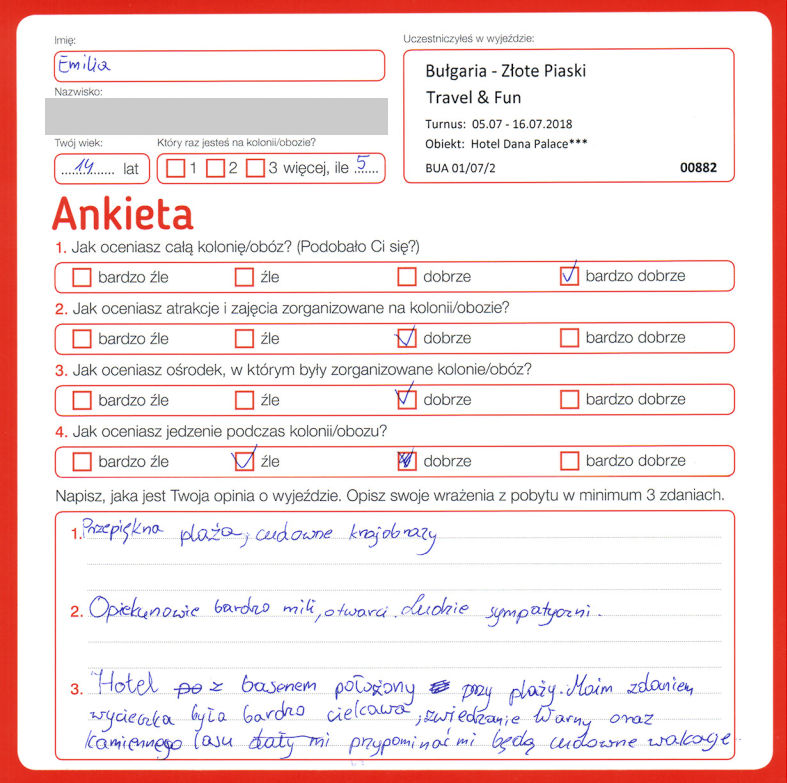 Imię:
Emilia
Nazwisko:
Twój wiek:
14 lat
Który raz jesteś na kolonii/obozie?
1 2 3 więcej, ile 5
Uczestniczyłeś w wyjeździe:
Bułgaria - Złote Piaski
Travel & Fun
Turnus: 05.07 - 16.07.2018
Obiekt: Hotel Dana Palace***
BUA 01/07/2 00882
Ankieta
1. Jak oceniasz całą kolonię/obóz? (Podobało Ci się?)
bardzo źle źle dobrze bardzo dobrze
2. Jak oceniasz atrakcje i zajęcia zorganizowane na kolonii/obozie?
bardzo źle źle dobrze bardzo dobrze
3. Jak oceniasz ośrodek, w którym były zorganizowane kolonie/obóz?
bardzo źle źle dobrze bardzo dobrze
4. Jak oceniasz jedzenie podczas kolonii/obozu?
bardzo źle źle dobrze bardzo dobrze
Napisz, jaka jest Twoja opinia o wyjeździe. Opisz swoje wrażenia z pobytu w minimum 3 zdaniach.
1. Przepiękna plaża, cudowne krajobrazy
2. Opiekunowie bardzo mili, otwarci. Ludzie sympatyczni.
3. Hotel z basenem położony przy plaży. Moim zdaniem
wycieczka była bardzo ciekawa, zwiedzanie Warny oraz
Kamiennego lasu dały mi przypominać mi będą cudowne wakacje